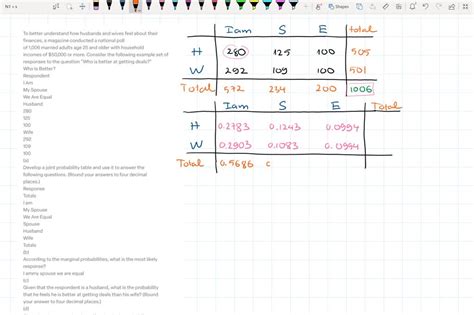 To better understand how husbands and wives feel about their
finances, a magazine conducted a national poll
of 1,006 married adults age 25 and older with household
incomes of $50,000 or more. Consider the following example set of
responses to the question "Who is better at getting deals?"
Who is Better?
Respondent
I Am
My Spouse
We Are Equal
Husband
280
125
100
Wife
292
109
100
(a)
Develop a joint probability table and use it to answer the
following questions. (Round your answers to four decimal
places.)
Response
Totals
I am
My Spouse
We are Equal
Spouse
Husband
Wife
Totals
(b)
According to the marginal probabilities, what is the most likely
response?
I am my spouse we are equal
(c)
Given that the respondent is a husband, what is the probability
that he feels he is better at getting deals than his wife? (Round
your answer to four decimal places.)
(d)
Iam S E total
H 280 125 100 505
W 292 109 100 501
Total 572 234 200 1006
Iam S E Total
H 0.2783 0.1243 0.0994
W 0.2903 0.1083 0.0994
Total 0.5686 0